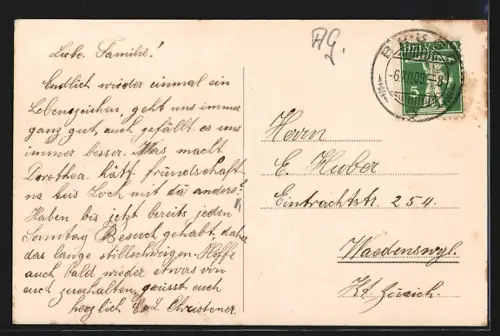 Liebe Familie!
Endlich wieder einmal ein
Lebenszeichen, geht uns immer
ganz gut, auch gefällt es uns
immer besser. Was macht
Dorothea. hätt fründschaft
na keis Loch mit dä andere?
Haben bis jetzt bereits jeden
Samstag Besuch gehabt, daher
das lange stillschweigen. Hoffe
auch bald wieder etwas von
euch zu erhalten, grüsst euch
herzlich E. & L. Christener.
AG.
-6.XII.09.
5
Herrn
E. Huber
Eintrachtstr. 254.
Waedenswyl.
Kt. Zürich.